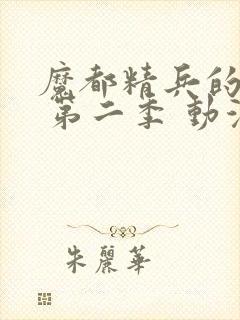 魔都精兵的
第二季 動
朱麗華